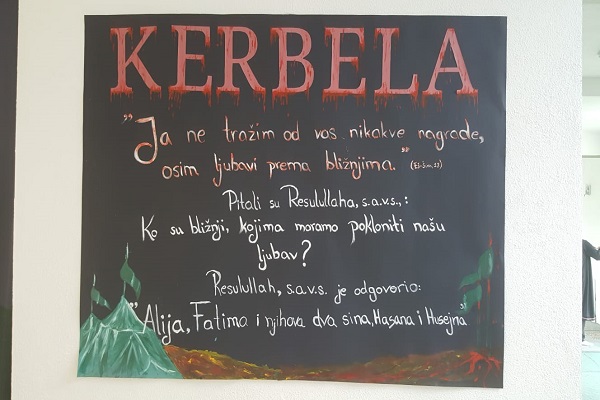 KERBELA
"Ja ne tražim od vas nikakve nagrade,
osim ljubavi prema bližnjima." (Eš-Šura, 23)
Pitali su Resulullaha, s.a.v.s.,:
Ko su bližnji, kojima moramo pokloniti našu
ljubav?
Resulullah, s.a.v.s. je odgovorio:
"Alija, Fatima i njihova dva sina, Hasana i Husejna"